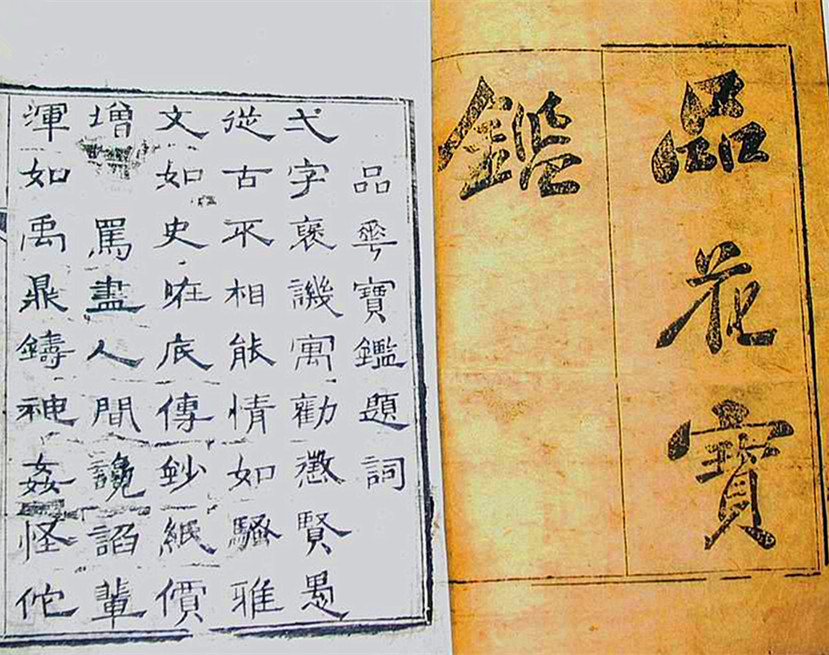 品花寶
鑑
品華寶鑑題詞
弌字褒譏寓勸懲賢愚
從古不相能情如騷雅
文如史恠底傳鈔紙價
增 罵盡人間讒諂輩
渾如禹鼎鑄神姦怪佗